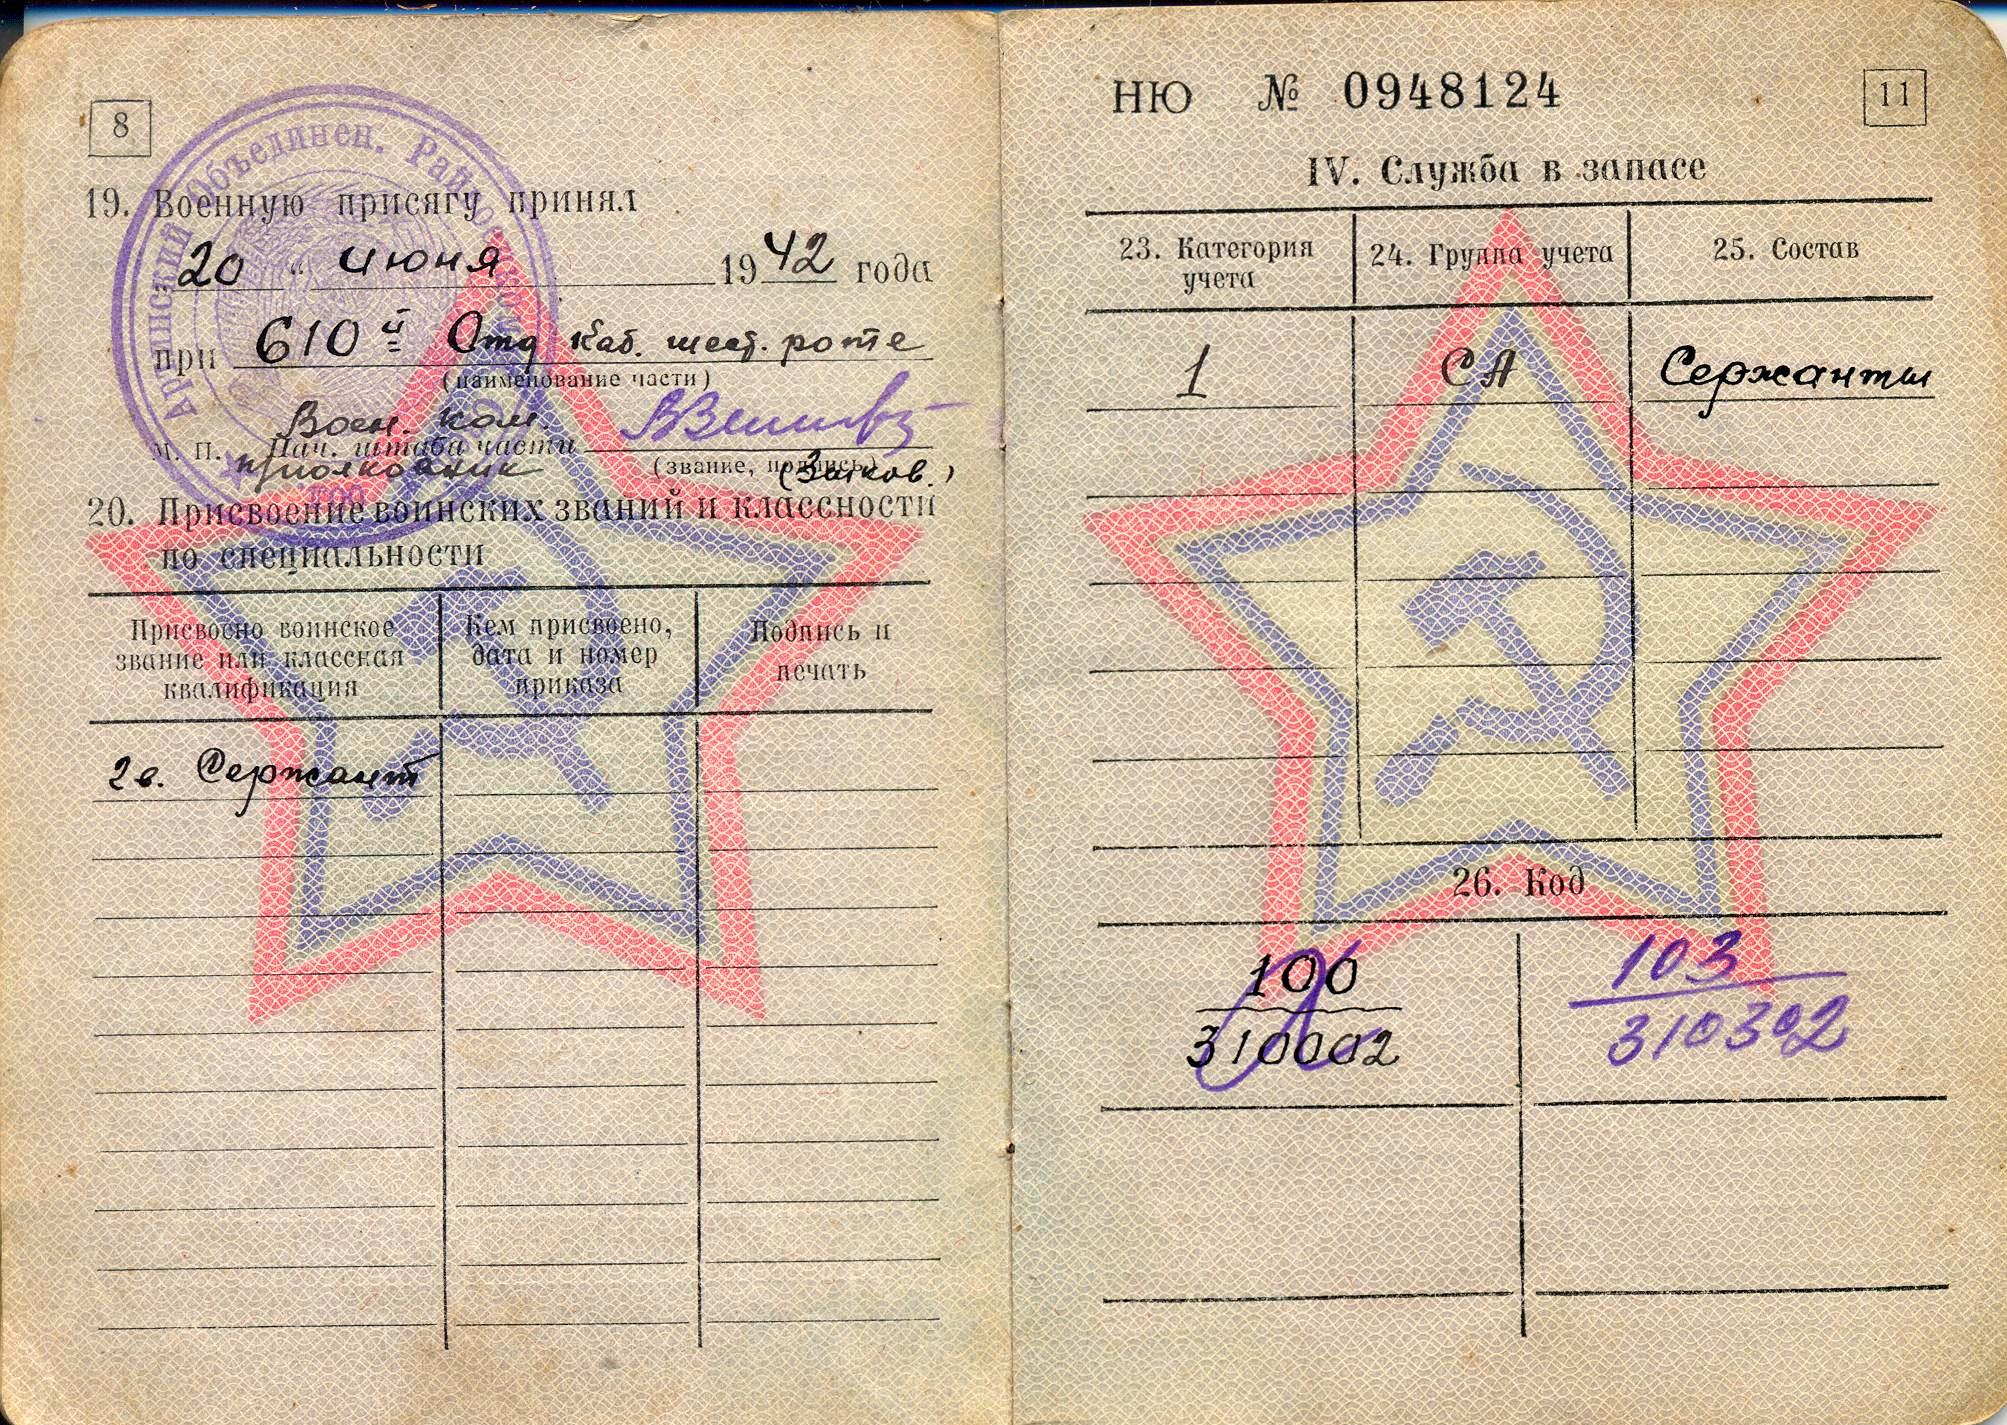 8
Артинский Объединен. Райвоенком
19. Военную присягу принял
„20“ июня 1942 года
при 610й Отд каб. шест. роте
(наименование части)
Воен. ком.
М. П. Нач. штаба части
п/полковник (звание, подпись)
20. Присвоение воинских званий и классности
по специальности
Присвоено воинское звание или классная квалификация
Кем присвоено, дата и номер приказа
Подпись и печать
Сержант
НЮ № 0948124
11
IV. Служба в запасе
23. Категория учета
24. Группа учета
25. Состав
1 СА Сержанты
26. Код
106 103
310002 310302